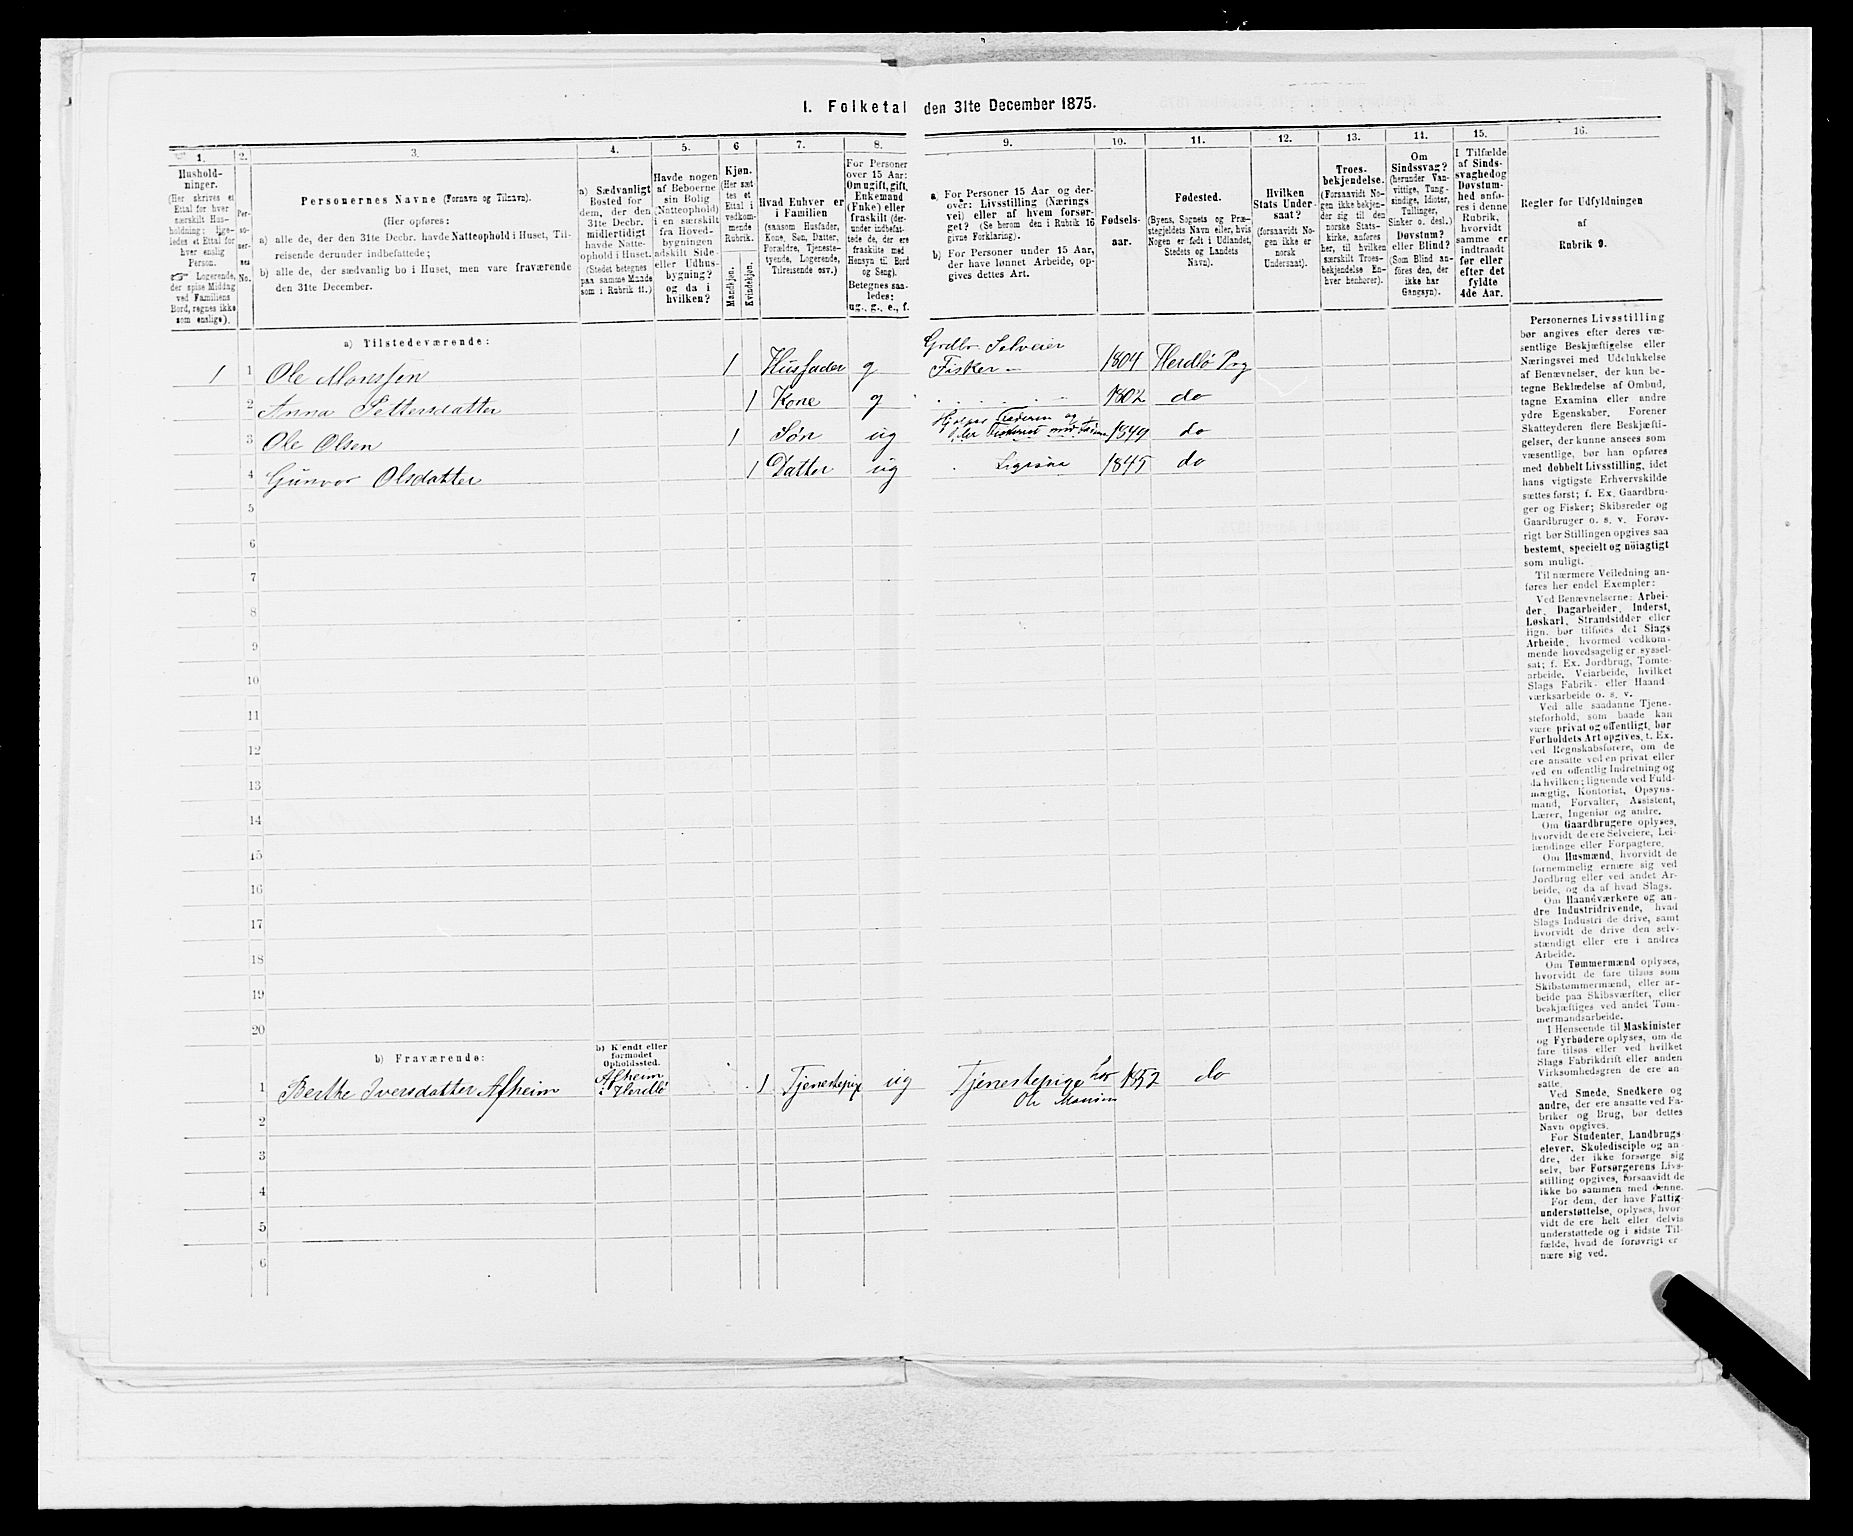 1. Folketal den 31te December 1875.
1. 2. 3. 4. 5. 6 7. 8. 9. 10. 11. 12. 13. 14. 15. 16.
Hushold-
ninger.
(Her skrives et
Ettal for hver
særskilt Hus-
holdning; lige-
ledes et Ettal for
hver enslig
Person.
☞ Logerende,
der spise Middag
ved Familiens
Bord, regnes ikke
som enslige).
Per-
so-
ner-
nes
No.
Personernes Navne (Fornavn og Tilnavn).
(Her opføres:
a) alle de, der den 31te Decbr. havde Natteophold i Huset, Til-
reisende derunder indbefattede;
b) alle de, der sædvanlig bo i Huset, men vare fraværende
den 31te December.
a) Sædvanligt
Bosted for
dem, der den
31te Decbr.
midlertidigt
havde Natte-
ophold i Huset.
(Stedet betegnes
paa samme Maade
som i Rubrik 11.)
Havde nogen
af Beboerne
sin Bolig
(Natteophold)
i en særskilt
fra Hoved-
bygningen
adskilt Side-
eller Udhus-
bygning?
og da i
hvilken?
Kjøn.
(Her sæt-
tes et
Ettal i
vedkom-
mende
Rubrik.
Mandkjøn.
Kvindekjøn.
Hvad Enhver er
i Familien
(saasom Husfader,
Kone, Søn, Datter,
Forældre, Tjeneste-
tyende, Logerende,
Tilreisende osv.)
For Personer
over 15 Aar:
Om ugift, gift,
Enkemand
(Enke) eller
fraskilt (der-
under indbefat-
tede de, der ere
fraskilte med
Hensyn til Bord
og Seng).
Betegnes saa-
ledes:
ug., g., e., f.
a. For Personer 15 Aar og der-
over: Livsstilling (Nærings
vei) eller af hvem forsør-
get? (Se herom den i Rubrik 16
givne Forklaring).
b) For Personer under 15 Aar,
der have lønnet Arbeide, op-
gives dettes Art.
Fødsels-
aar.
Fødested.
(Byens, Sognets og Præ-
stegjeldets Navn eller, hvis
Nogen er født i Udlandet,
Stedets og Landets
Navn).
Hvilken
Stats Under-
saat?
(forsaavidt No-
gen ikke er
norsk
Undersaat).
Troes-
bekjendelse.
(Forsaavidt No-
gen ikke bekjen-
der sig til den
norske Stats-
kirke, anføres
her, til hvilken
særskilt Troes-
bekjendelse En-
hver henhører).
Om
Sindssvag?
(herunder Van-
vittige, Tung-
sindige, Idioter,
Tullinger,
Sinker o. desl.)
Døvstum?
eller Blind?
(Som Blind an-
føres den, der
ikke har
Gangsyn).
I Tilfælde
af Sinds-
svaghedog
Døvstum-
hed anfø-
res i denne
Rubrik,
hvorvidt
samme er
indtraadt
før eller
efter det
fyldte
4de Aar.
Regler for Udfyldningen
af
Rubrik 9.
a) Tilstedeværende:
1 1 Ole Monssen 1 Husfader g Grdbr. Selveier
Fisker 1804 Herdlø Prg
2 Anna Pettersdatter 1 Kone g 1802 do
3 Ole Olsen 1 Søn ug Hjelper Faderen og
1849 do
4 Gunvor Olsdatter 1 Datter ug Ligesaa 1845 do
5
6
7
8
9
10
11
12
13
14
15
16
17
18
19
20
b) Fraværende:
b) Kjendt eller
formodet
Opholdssted.
1 Berthe Iversdatter Afheim Afheim
i Herdlø 1 Tjenestepige ug Tjenestepige hos
Ole Monsen 1852 do
2
3
4
5
6
Personernes Livsstilling
bør angives efter deres væ-
sentlige Beskjæftigelse eller
Næringsvei med Udelukkelse
af Benævnelser, der kun be-
tegne Beklædelse af Ombud,
tagne Examina eller andre
ydre Egenskaber. Forener
Skatteyderen flere Beskjæfti-
gelser, der kunne ansees som
væsentlige, bør han opføres
med dobbelt Livsstilling, idet
hans vigtigste Erhvervskilde
sættes først; f. Ex. Gaardbru-
ger og Fisker; Skibsreder og
Gaardbruger o. s. v. Forøv-
rigt bør Stillingen opgives saa
bestemt, specielt og nöiagtigt
som muligt.
Til nærmere Veiledning an-
føres her endel Exempler:
Ved Benævnelserne: Arbei-
der, Dagarbeider, Inderst,
Løskarl, Strandsidder eller
lign. bør tilføies det Slags
Arbeide, hvormed vedkom-
mende hovedsagelig er syssel-
sat; f. Ex. Jordbrug, Tomte-
arbeide, Veiarbeide, hvilket
Slags Fabrik- eller Haand-
værksarbeide o. s. v.
Ved alle saadanne Tjene-
steforhold, som baade kan
være privat og offentligt, bør
Forholdets Art opgives, t. Ex.
ved Regnskabsførere, om de
ere ansatte ved en privat eller
ved en offentlig Indretning og
da hvilken; lignende ved Fuld-
mægtig, Kontorist, Opsyns-
mand, Forvalter, Assistent,
Lærer, Ingeniør og andre.
Om Gaardbrugere oplyses,
hvorvidt de ere Selveiere, Lei-
lændinge eller Forpagtere.
Om Husmænd, hvorvidt de
fornemmelig ernære sig ved
Jordbrug eller ved andet Ar-
beide, og da af hvad Slags.
Om Haandværkere og an-
dre Industridrivende, hvad
Slags Industri de drive, samt
hvorvidt de drive den selv-
stændigt eller ere i andres
Arbeide.
Om Tømmermænd oplyses,
hvorvidt de fare tilsøs som
Skibstømmermænd, eller ar-
beide paa Skibsværfter, eller
beskjæftiges ved andet Tøm-
mermandsarbeide.
I Henseende til Maskinister
og Fyrbødere oplyses, om de
fare tilsøs eller ved hvilket
Slags Fabrikdrift eller anden
Virksomhedsgren de ere an-
satte.
Ved Smede, Snedkere og
andre, der ere ansatte ved Fa-
briker og Brug, bør dettes
Navn opgives.
For Studenter, Landbrugs-
elever, Skoledisciple og an-
dre, der ikke forsørge sig
selv, bør Forsørgerens Livs-
stilling opgives, forsaavidt de
ikke bo sammen med denne.
For dem, der have Fattig-
understøttelse, oplyses, hvor-
vidt de ere helt eller delvis
understøttede og i sidste Til-
fælde, hvad de forøvrigt er
nære sig ved.